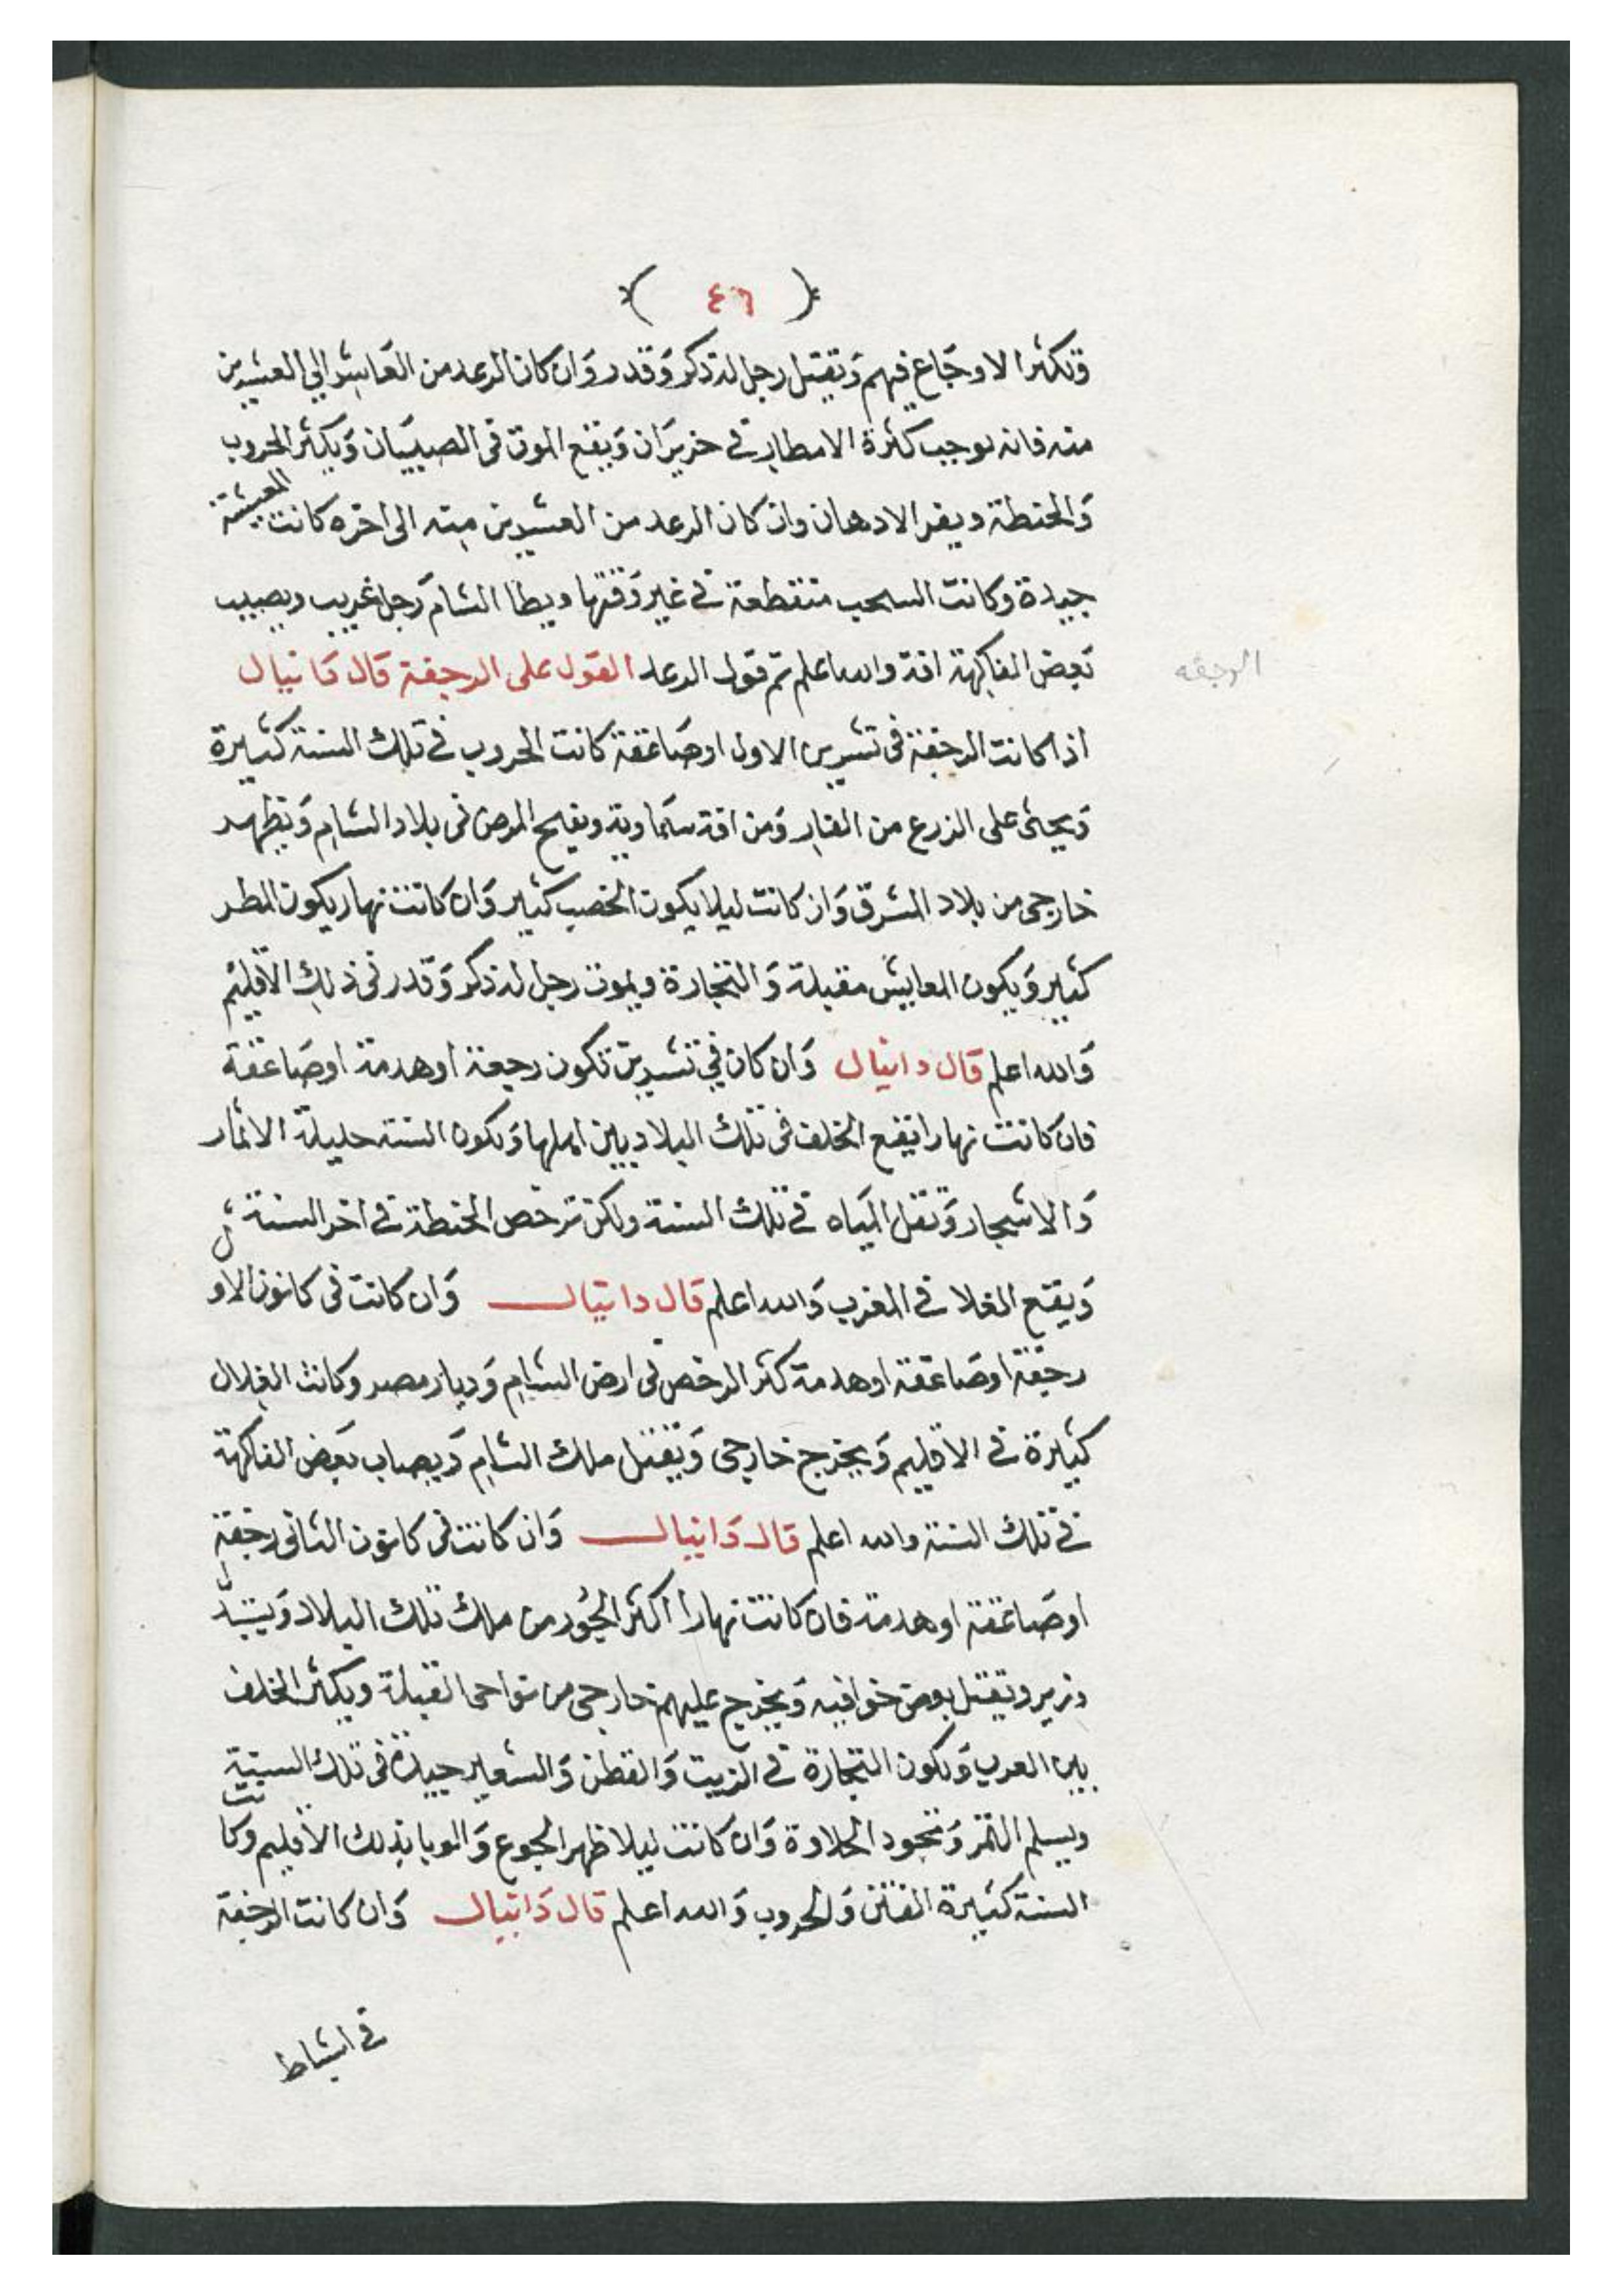 ( ٤٦ )
وتكثر الاوجاع فيهم وتقتل رجل له ذكر وقدر وان كان الرعد من العاشر الي العشرين
منه فانه يوجب كثرة الامطار في حزيران ويقع الموت في الصبيان ويكثر الحروب
والحنطة ويفر الادهان وان كان الرعد من العشرين منه الى اخره كانت المعيشة
جيدة وكانت السحب منقطعة في غير وقتها ويطا الشام رجل غريب ويصيب
بعض الفاكهة افة والله اعلم تم قول الرعد القول على الرجفة قال دانيال
الرجفه
اذا كانت الرجفة في تشرين الاول او صاعقة كانت الحروب في تلك السنة كثيرة
ويجئ على الزرع من الفار ومن افة سماوية ويقع المرض في بلاد الشام ويظهر
خارجى من بلاد المشرق وان كانت ليلا يكون الخصب كثير وان كانت نهار يكون المطر
كثير ويكون المعايش مقبلة والتجارة ويموت رجل له ذكر وقدر في ذلك الاقليم
والله اعلم قال دانيال وان كان في تشرين تكون رجفة او هدمة او صاعقة
فان كانت نهارا يقع الخلف في تلك البلاد بين اهلها وتكون السنة جليلة الاثمار
والاشجار وتقل المياه في تلك السنة ولكن ترخص الحنطة في اخر السنة
ويقع الغلا في المغرب والله اعلم قال دانيال وان كانت في كانون الاول
رجفة او صاعقة او هدمة كثر الرخص في ارض الشام وديار مصر وكانت الغلال
كثيرة في الاقليم ويخرج خارجى ويقتل ملك الشام ويصاب بعض الفاكهة
في تلك السنة والله اعلم قال دانيال وان كانت في كانون الثانى رجفة
او صاعقة او هدمة فان كانت نهارا اكثر الجور من ملك تلك البلاد ويتبدل
وزير ويقتل بعض خوافيه ويخرج عليهم خارجى من نواحى القبلة ويكثر الخلف
بين العرب وتكون التجارة في الزيت والقطن والشعير جيدة في تلك السنة
ويسلم الثمر وتجود الحلاوة وان كانت ليلا ظهر الجوع والوبا بذلك الاقليم وكانت
السنة كثيرة الفتن والحروب والله اعلم قال دانيال وان كانت الرجفة
في اشباط